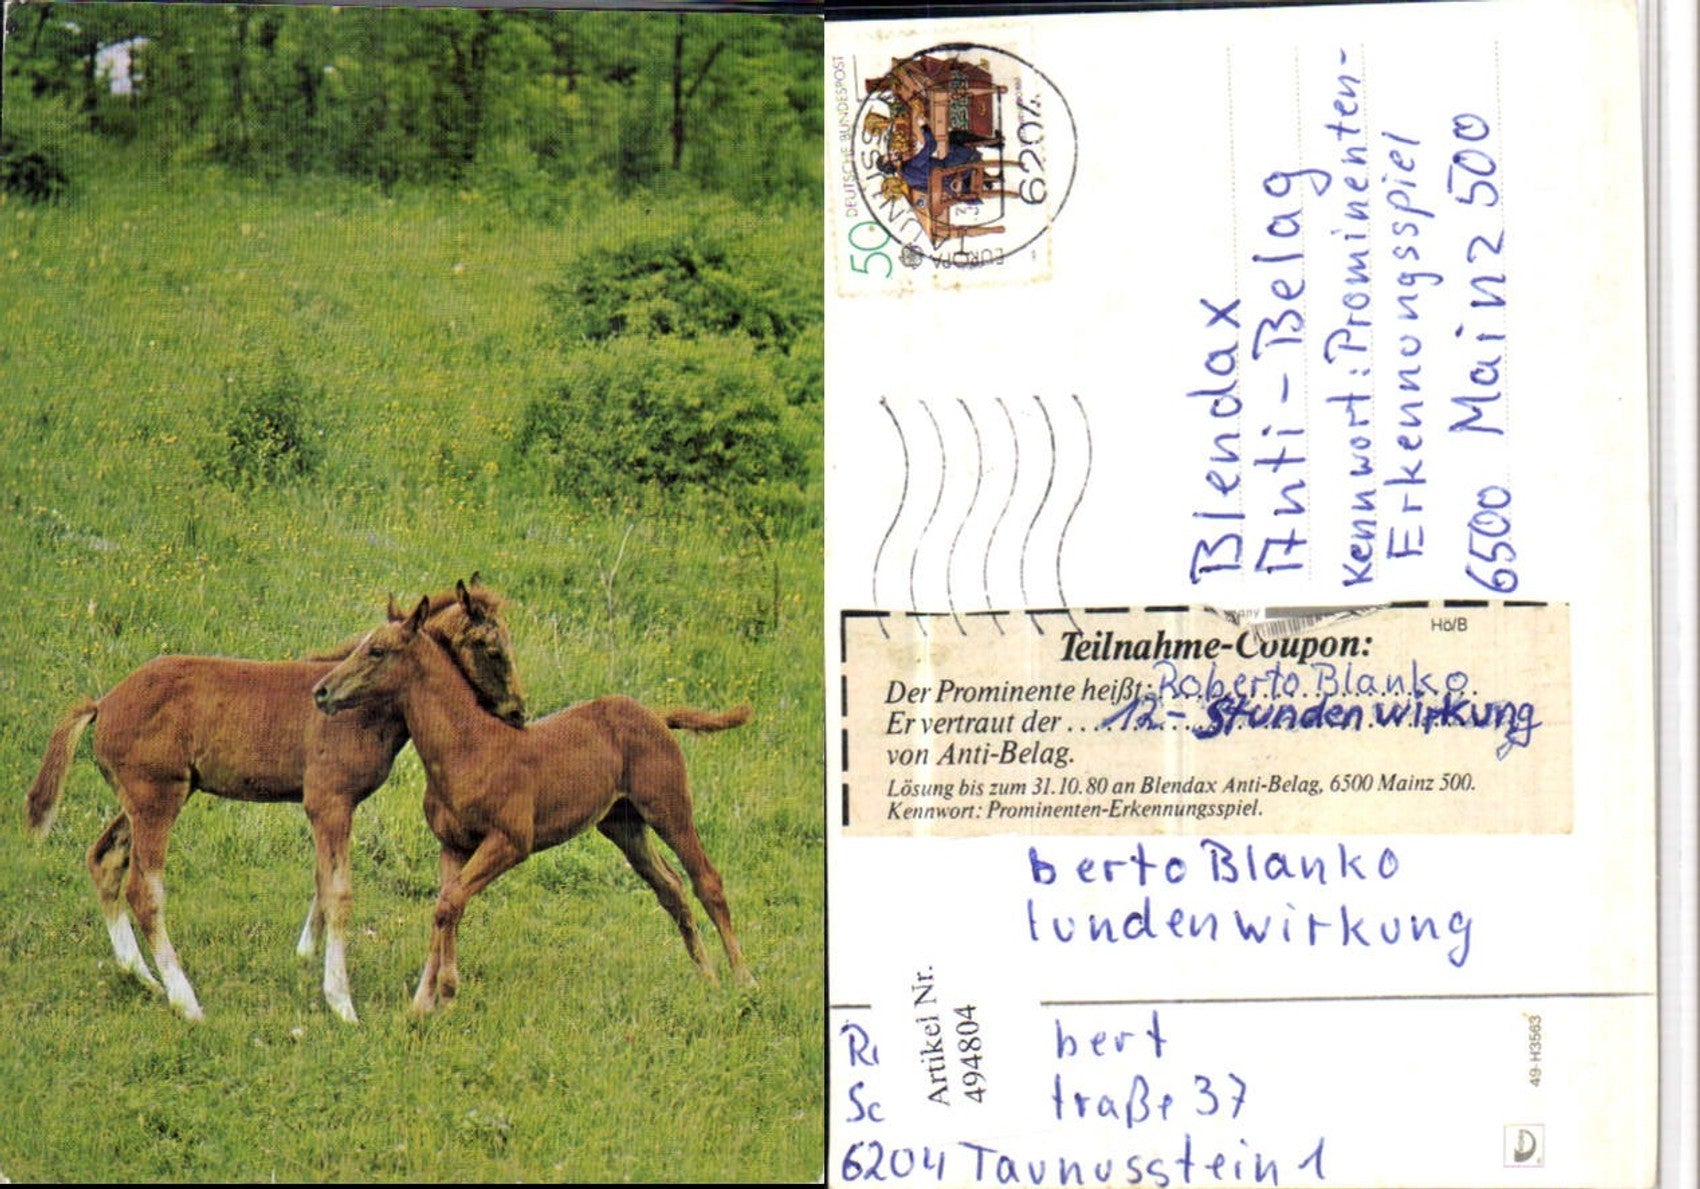 DEUTSCHE BUNDESPOST
50
EUROPA
6204
Blendax
Anti-Belag
Kennwort: Prominenten-
Erkennungsspiel
6500 Mainz 500
Ho/B
Teilnahme-Coupon:
Der Prominente heißt: Roberto Blanko
Er vertraut der .... 12-Stundenwirkung
von Anti-Belag.
Lösung bis zum 31.10.80 an Blendax Anti-Belag, 6500 Mainz 500.
Kennwort: Prominenten-Erkennungsspiel.
berto Blanko
tundenwirkung
Artikel Nr.
494804
bert
Sc traße 37
6204 Taunusstein 1
49-H3563